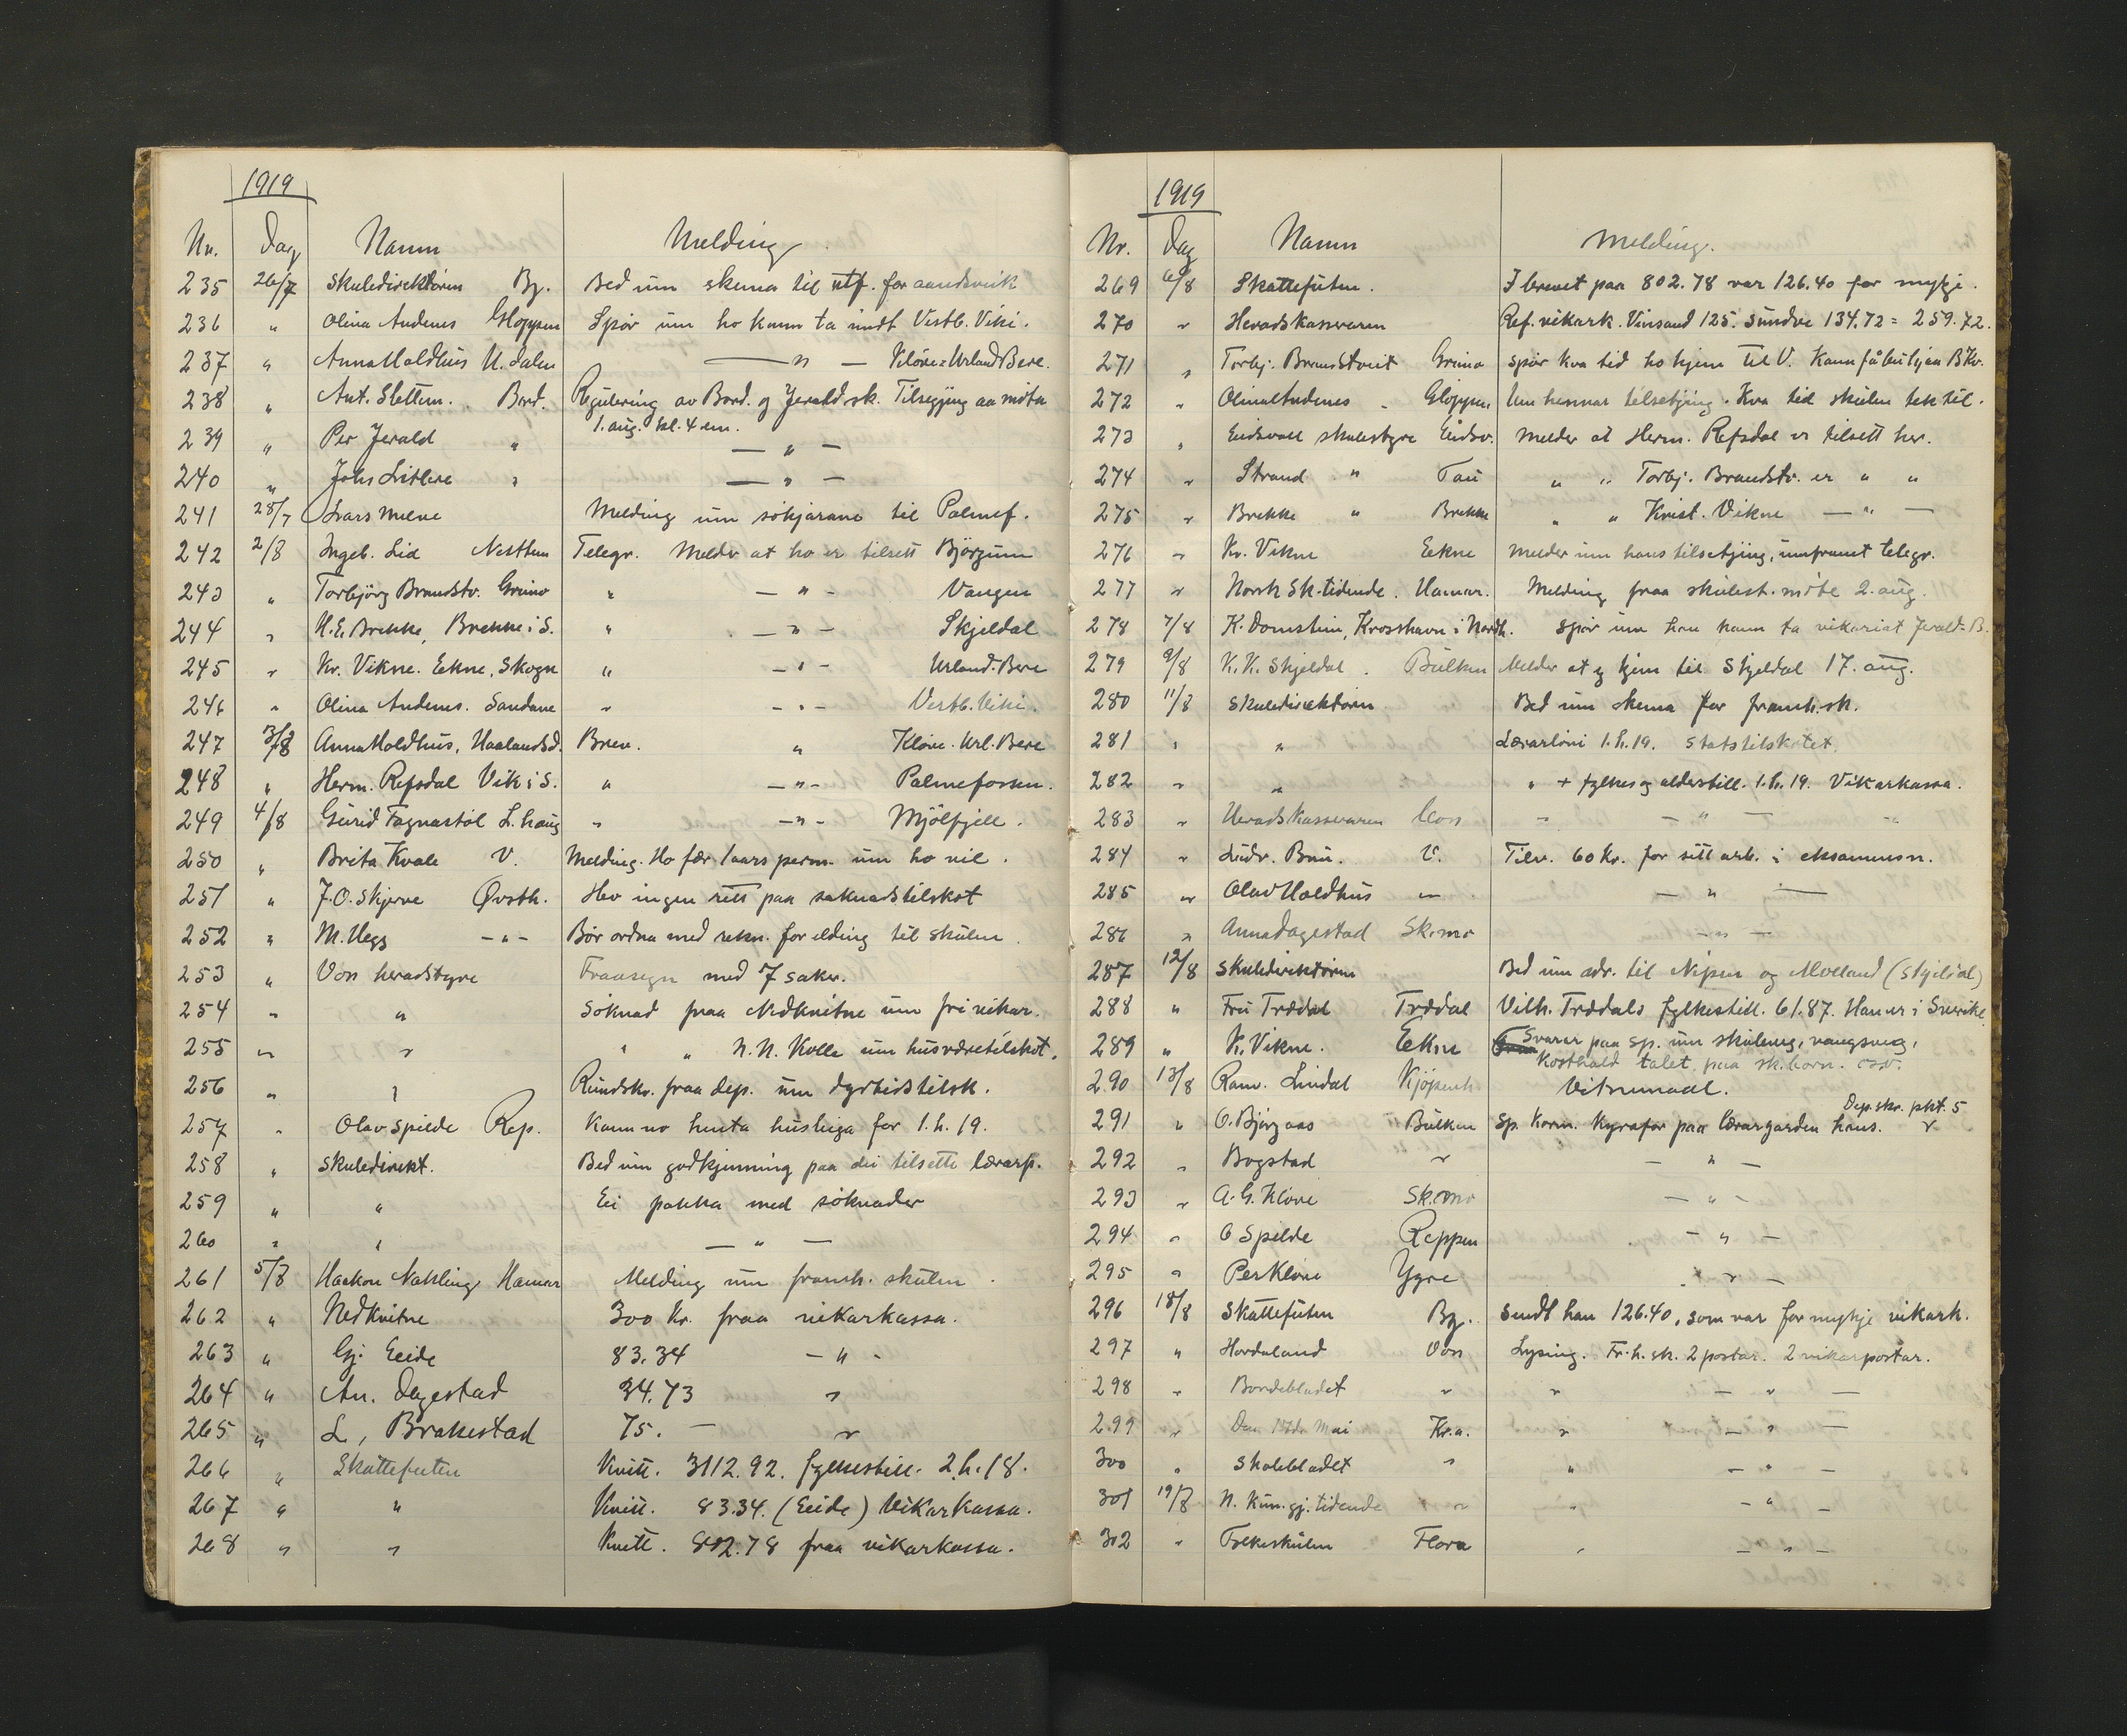 1919
Nr. Dag Namn Melding
235 26/7 Skuledirektören Bg. Bed um skema til utf. for aandsveik
236 " Olina Andenes Gloppen Spör um ho kann ta imot Vestb. Viki.
237 " Anna Holdhus H.dalen — " — Klöve = Urland Bere.
238 " Ant. Slettem. Bord. Regulering av Bord. og Jerald sk. Tilsegjing aa möta
1. aug. kl. 4 em.
239 " Per Jerald " — " —
240 " Johs Litlere " — " —
241 28/7 Lars Melve Melding um sökjarane til Palmef.
242 2/8 Ingeb. Lid Nesttun Telegr. Melder at ho er tilsett Björgum
243 " Torbjörg Brandstv. Grimo " — " — Vangen
244 " H.E. Brekke, Brekke i S. " — " — Skjeldal
245 " Kr. Vikne. Eekne, Skogn " — " — Urland-Bere
246 " Olina Andenes. Sandane " — " — Vestb. Viki.
247 3/8 Anna Holdhus, Haalandsd. Brev. " Klöve. Url. Bere
248 " Herm. Refsdal Vik i S. " — " — Palmefossen.
249 4/8 Gurid Fagnastöl L. haug " — " — Mjölfjell.
250 " Brita Kvale V. Melding. Ho fær 1 aars perm. um ho vil.
251 " J.O. Skjerve Øvsth. Hev ingen rett paa saknadstilskot
252 " M. Hegg — " — Bör ordna med rekn. for elding til skulen.
253 " Voss heradstyre Fraasegn med 7 saker.
254 " " Söknad fraa Nedkvitne um fri vikar.
255 " " " " N.N. Kolle um husværetilskot.
256 " " Rundskr. fraa dep. um dyrtidstilsk.
257 " Olav Spilde Rep. Kann no henta husleiga for 1. h. 19.
258 " Skuledirekt. Bed um godkjenning paa dei tilsette lærarp.
259 " " Ei pakka med söknader
260 " " — " —
261 5/8 Haakon Nahling Hamar Melding um framh. skulen.
262 " Nedkvitne 300 kr. fraa vikarkassa.
263 " Gj. Eeide 83.34 — " —
264 " An. Dagestad 34.73 "
265 " L, Brakestad 75. — "
266 " Skattefuten Kvitt. 3112.92. fylkestill. 2. h. 18.
267 " " Kvitt. 83.34. (Eeide) Vikarkassa.
268 " " Kvitt. 802.78 fraa vikarkassa.
1919
Nr. Dag Namn Melding.
269 6/8 Skattefuten. I brevet paa 802.78 var 126.40 for mykje.
270 " Heradskasseraren Ref. vikark. Vinsand 125. Sundve 134.72 = 259.72.
271 " Torbj. Brandstveit Grimo Spör kva tid ho kjem til V. Kann få bu hjaa B.Kv.
272 " Olina Andenes Gloppen Um hennar tilsetjing. Kva tid skulen tek til.
273 " Eidsvoll skulestyre Eidsv. Melder at Herm. Refsdal er tilsett her.
274 " Strand " Tau " " Torbj. Brandstv. er " "
275 " Brekke " Brekke " " Krist. Vikne — " —
276 " Kr. Vikne Eekne Melder um hans tilsetjing, umframt telegr.
277 " Norsk Sk.tidende. Hamar. Melding fraa skulest. möte 2. aug.
278 7/8 K. Domstein, Krosshavn i Nordfj. Spör um han kann ta vikariat Jerald-B.
279 9/8 K.K. Skjeldal. Bulken Melder at eg kjem til Skjeldal 17. aug.
280 11/8 Skuledirektören Bed um skema for framh. sk.
281 " " Lærarlöni 1. h. 19. Statstilskotet.
282 " " " + fylkes og alderstill. 1. h. 19. Vikarkassa.
283 " Heradskasseraren Voss " — " — "
284 " Ludv. Bru. V. Tilv. 60 kr. for sitt arb. i eksamensn.
285 " Olav Holdhus " — " —
286 " Anna Dagestad Sk.mo — " —
287 12/8 Skuledirektören Bed um adr. til Nipen og Molland (Skjeldal)
288 " Fru Trædal Trædal Vilh. Trædals fylkestill. 61.87. Han er i Sverike.
289 " K. Vikne. Eekne Svarar paa sp. um skuleveg, vangsveg,
Kosthald talet paa sk.born. osv.
290 13/8 Ranv. Lindal Kjöpenh. Vitnemaal.
291 " O. Björgaas Bulken Sp. Korm. kyrafor paa lærargarden hans. Dep. skr. pkt. 5 "
292 " Bogstad " — " —
293 " A.G. Klöve Sk.mo — " —
294 " O Spilde Reppen — " —
295 " Per Klöve Ygre — " —
296 18/8 Skattefuten Bg. Sendt han 126.40, som var for mykje vikark.
297 " Hordaland Voss Lysing. Fr. h. sk. 2 postar. 2 vikarpostar.
298 " Bondebladet " " — " —
299 " Den 17de Mai Kr.a. " — " —
300 " Skolebladet " " — " —
301 19/8 N. Kun.gj. tidende " " — " —
302 " Folkeskulen Flora " — " —